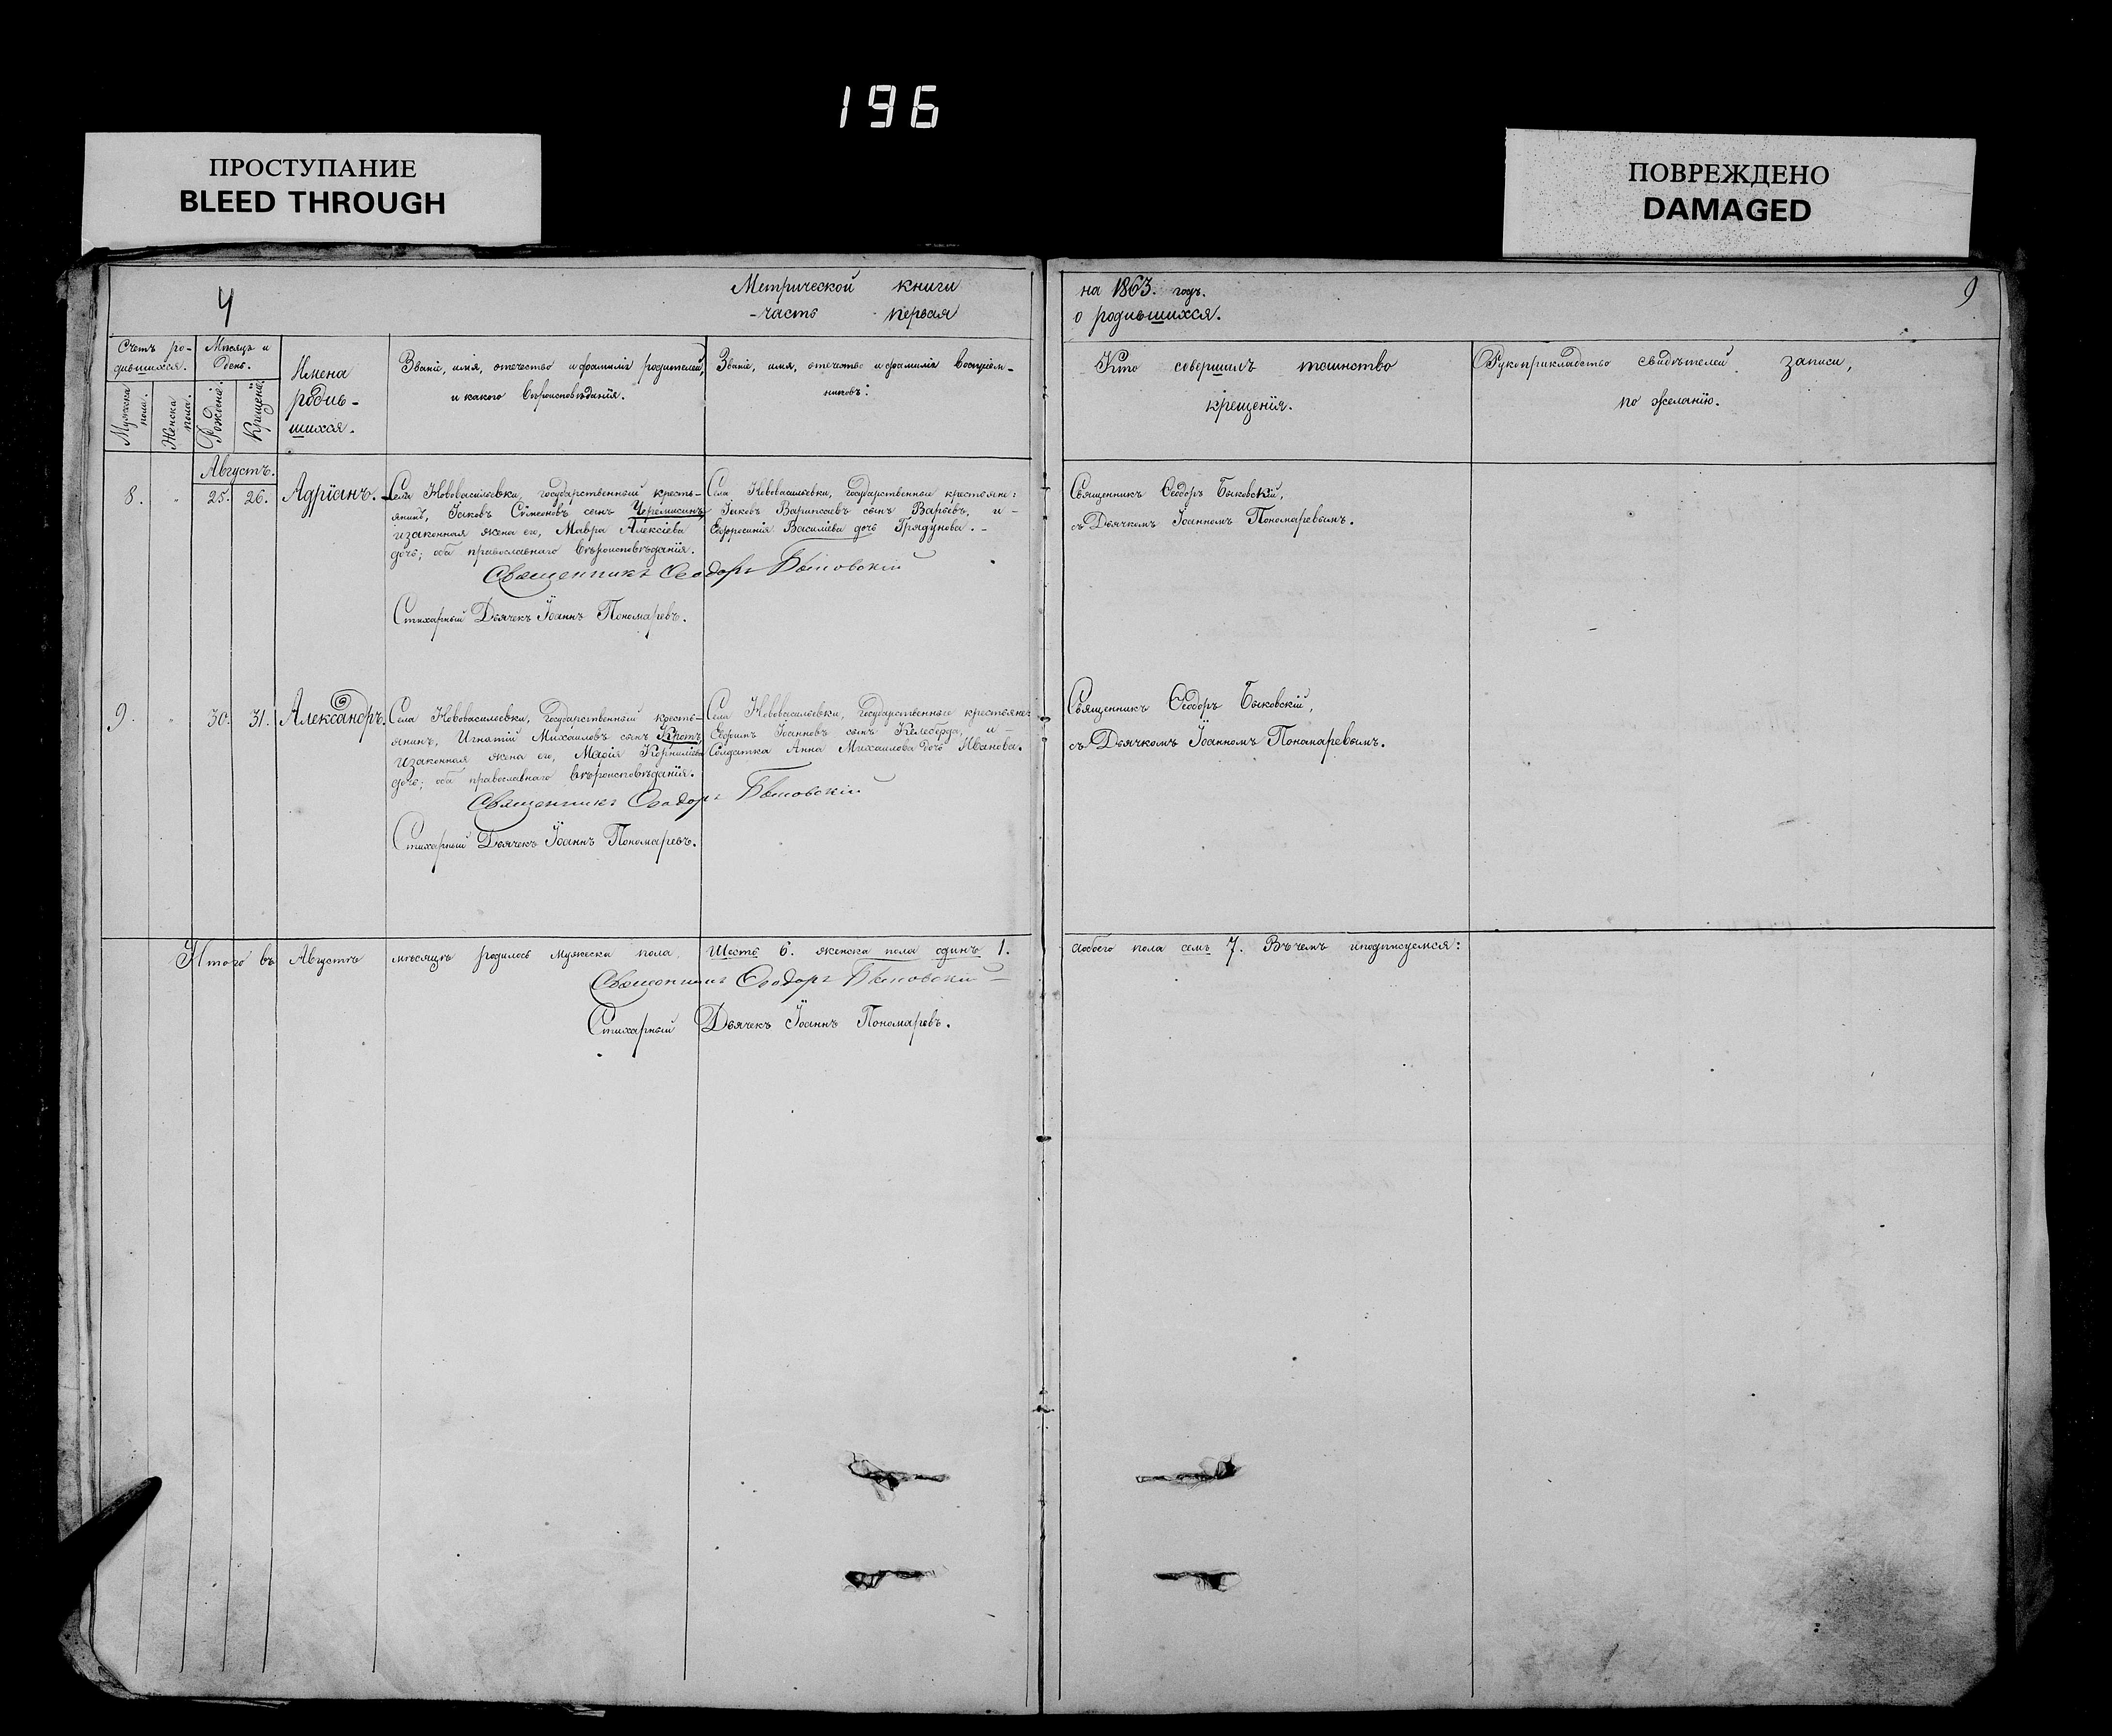 196
ПРОСТУПАНИЕ
BLEED THROUGH
ПОВРЕЖДЕНО
DAMAGED
4
Метрической книги
часть первая
на 1863. годъ.
о родившихся.
9
Счетъ ро-
дившихся.
Мужеска
пола.
Женска
пола.
Мѣсяцъ и
День.
Рожденія.
Крещенія.
Имена
родив-
шихся.
Званіе, имя, отечество и фамилія родителей,
и какого вѣроисповѣданія.
Званіе, имя, отечество и фамилія воспріем-
никовъ:
Кто совершалъ таинство
крещенія.
Рукоприкладство свидѣтелей записи,
по желанію.
Августъ.
8. " 25. 26. Адріанъ.
Села Нововасильевки, Государственный кресть-
янинъ, Іаковъ Сѵмеоновъ сынъ Черемисинъ,
и законная жена его, Мавра Алексіева
дочь; оба православнаго вѣроисповѣданія.
Села Нововасильевки, Государственные крестьяне:
Іаковъ сынъ Варьевъ, и -
Евфросинія Василіева дочь Грядунова. -
Священникъ Ѳеодоръ Быковскій,
съ Дьячкомъ Іоанномъ Пономаревымъ.
Священникъ Ѳеодоръ Быковскій
Стихарный Дьячекъ Іоаннъ Пономаревъ.
9. " 30. 31. Александръ.
Села Нововасильевки, Государственный кресть-
янинъ, Игнатій Михаиловъ сынъ Кротъ,
и законная жена его, Марія Корниліева
дочь; оба православнаго вѣроисповѣданія.
Села Нововасильевки, Государственные крестьяне:
Іоанновъ сынъ Келеберда, и -
Солдатка Анна Михаилова дочь Иванова.
Священникъ Ѳеодоръ Быковскій,
съ Дьячкомъ Іоанномъ Понамаревымъ.
Священникъ Ѳеодоръ Быковскій
Стихарный Дьячекъ Іоаннъ Пономаревъ.
Итого въ Августѣ мѣсяцѣ родилось мужеска пола, Шесть 6. женска пола одинъ 1.
а обоего пола семь 7. Въ чемъ и подписуемся:
Священникъ Ѳеодоръ Быковскій
Стихарный Дьячекъ Іоаннъ Пономаревъ.